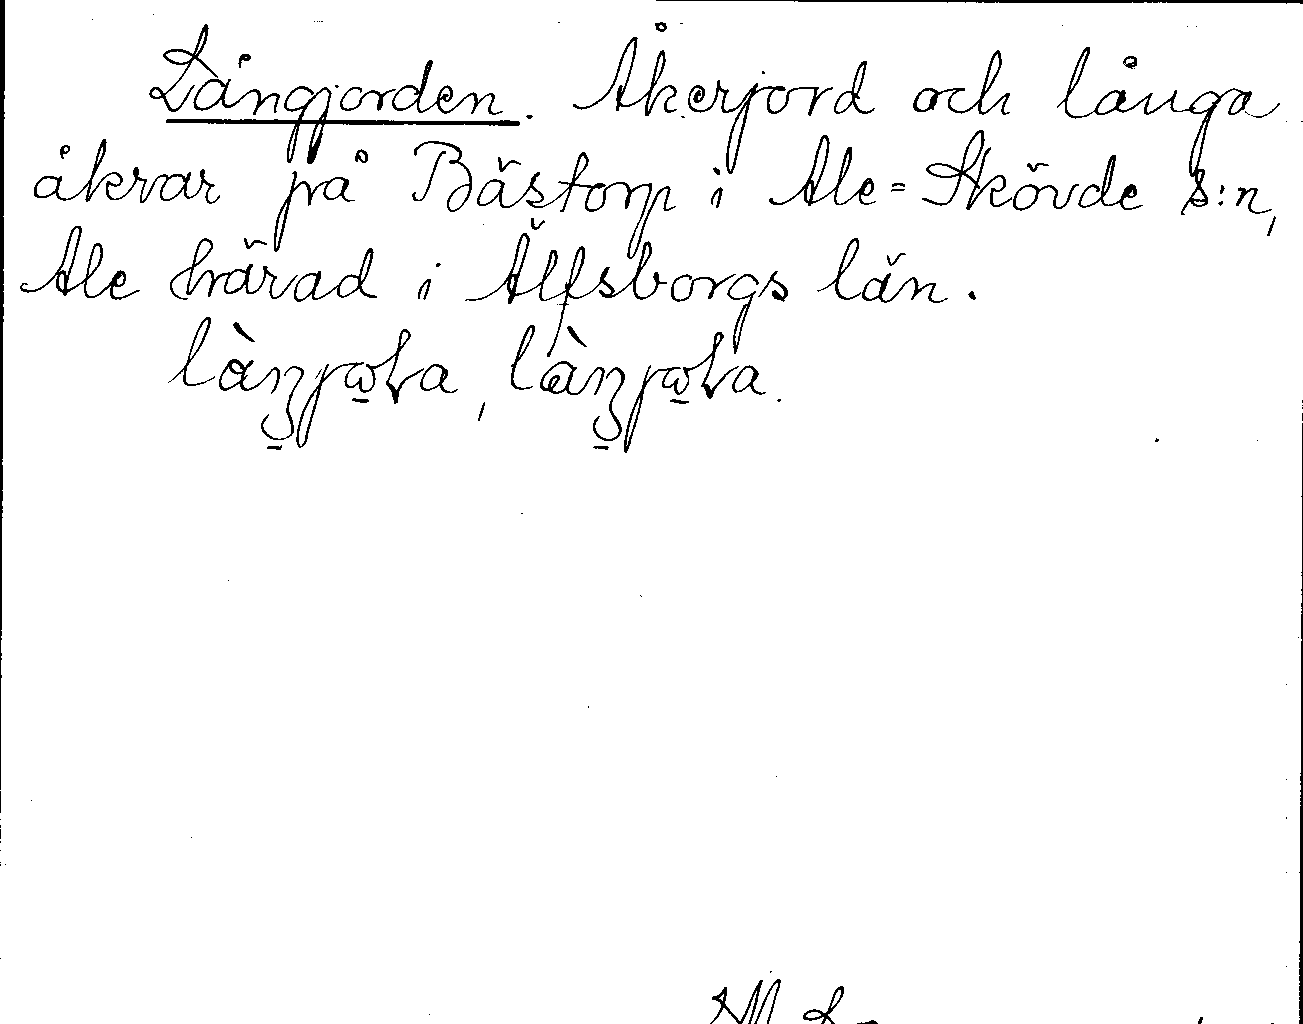 Långjorden. Åkerjord och långa
åkrar på Bästorp i Ale=Skövde s:n,
Ale härad i Älfsborgs län.